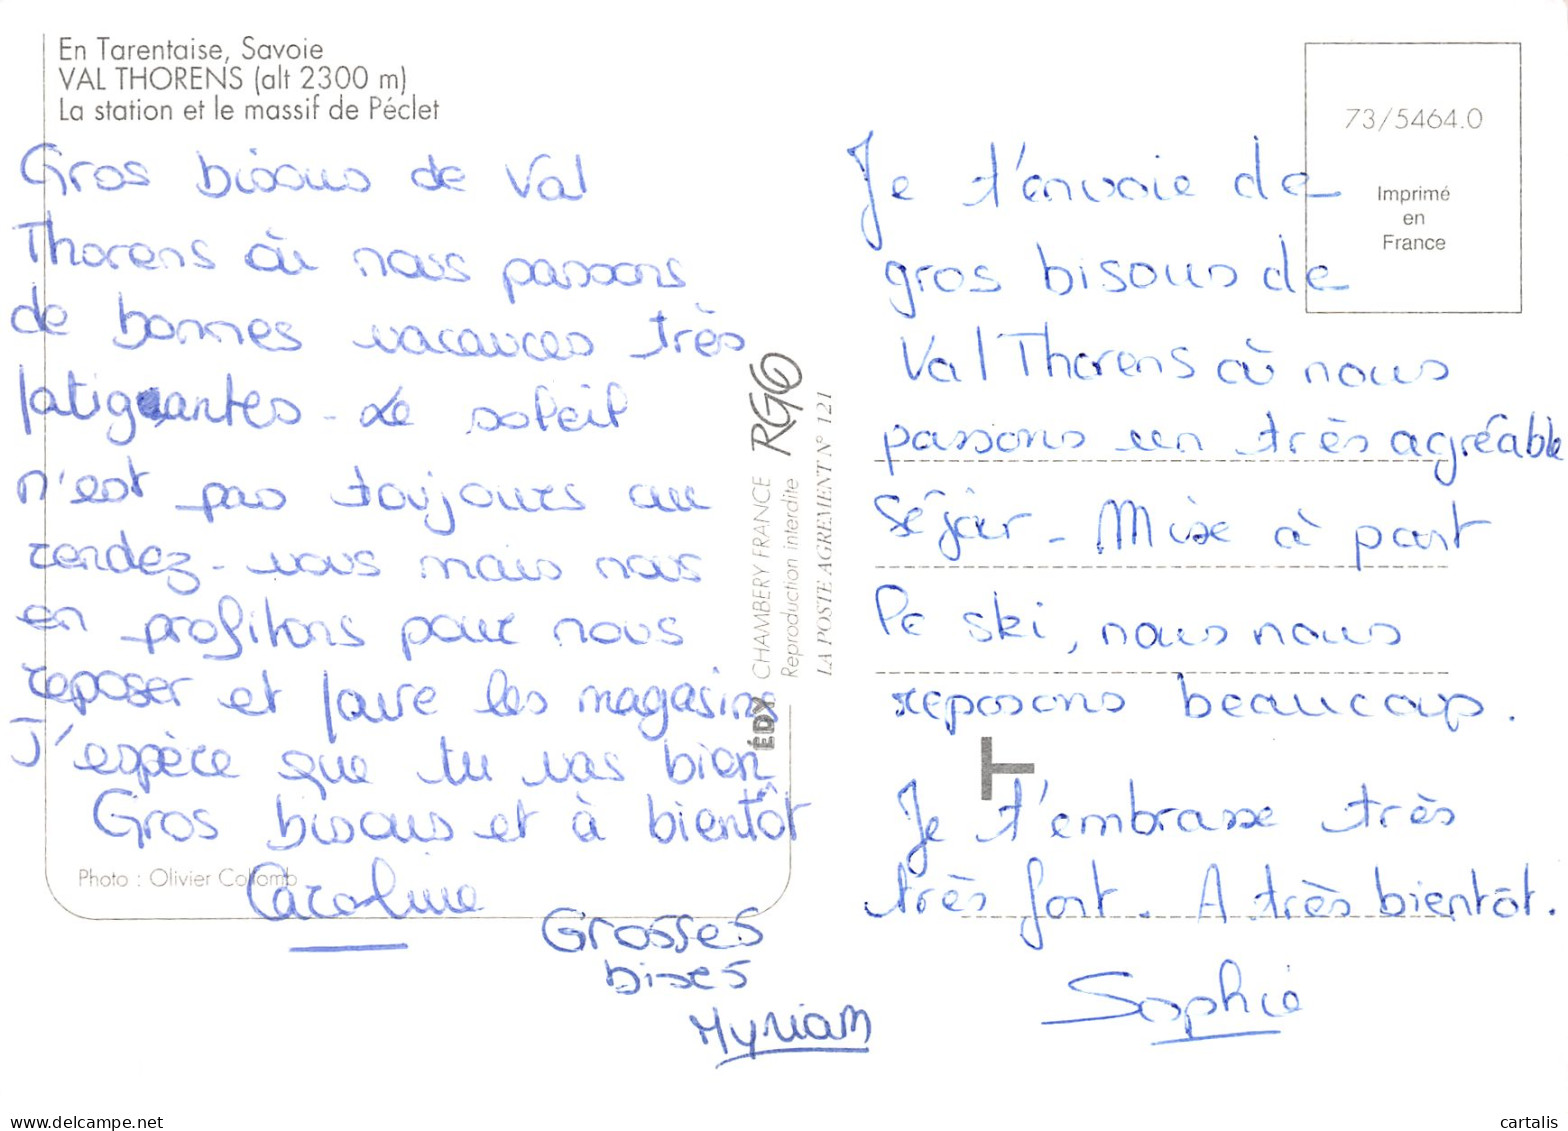 En Tarentaise, Savoie
VAL THORENS (alt 2300 m)
La station et le massif de Péclet
Gros bisous de Val
Thorens où nous passons
de bonnes vacances très
fatiguantes - Le soleil
n'est pas toujours au
rendez-vous mais nous
en profitons pour nous
reposer et faire les magasins
J'espère que tu vas bien
Gros bisous et à bientôt
Caroline
Photo : Olivier Collomb
Grosses
bises
Myriam
ÉDY CHAMBERY FRANCE RGO
Reproduction interdite
LA POSTE AGREMENT N° 121
73/5464.0
Imprimé
en
France
Je t'envoie de
gros bisous de
Val Thorens où nous
passons un très agréable
séjour - Mise à part
le ski, nous nous
reposons beaucoup.
T
Je t'embrasse très
très fort. A très bientôt.
Sophie
cartalis
www.delcampe.net